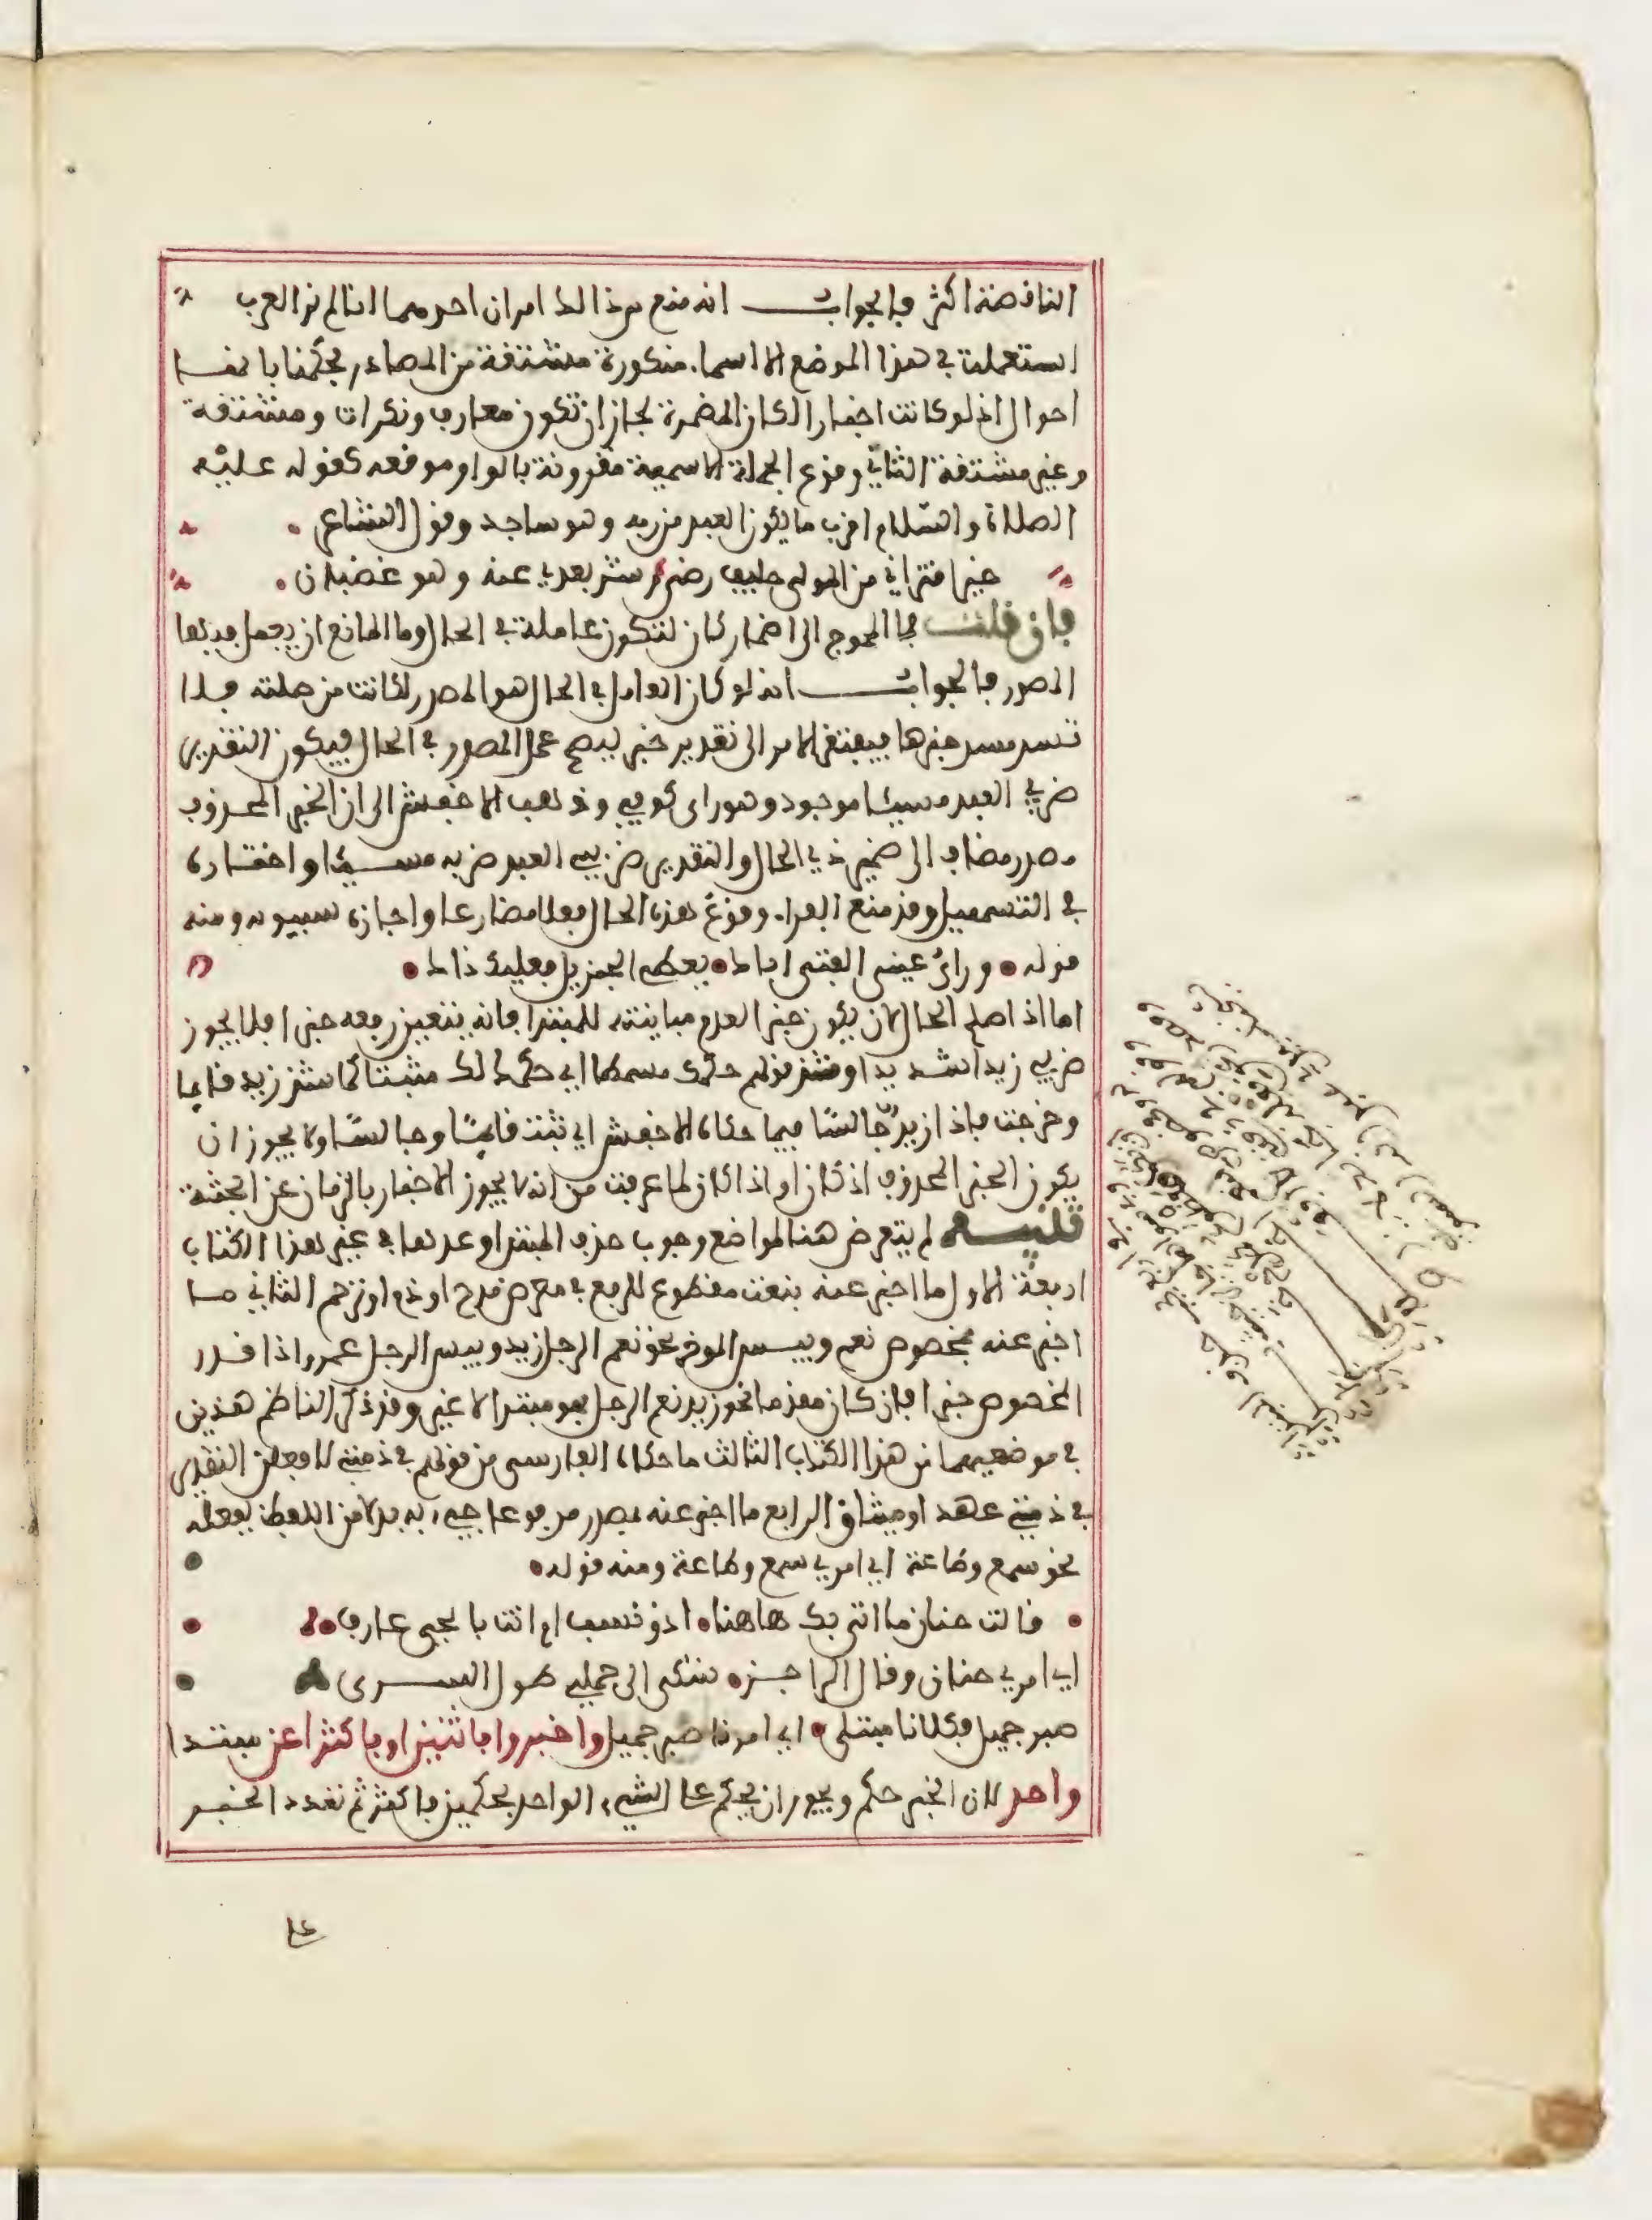 الناقصة اكثر فالجواب انه منع من ذالك امران احدهما انا لم نر العرب
استعملت في هذا الموضع الا اسما منكورة مشتقة من المصادر فحكمنا بانها
احوال اذ لو كانت اخبارا لكان المضمرة لجاز ان تكون معارف ونكرات ومشتقة
وغير مشتقة الثاني وقوع الجملة الاسمية مقرونة بالواو موقعه كقوله عليه
الصلاة والسلام اقرب ما يكون العبد من ربه وهو ساجد وقول الشاعر
خير اقترابي من المولى حليف رضى وشر بعدي عنه وهو غضبان
فان قلت فما المحوج الى اضمار كان لتكون عاملة في الحال وما المانع ان يعمل فيها
المصدر فالجواب انه لو كان العامل في الحال هو المصدر لكانت من صلته فلا
تسد مسد خبرها فيفتقر الامر الى تقدير خبر ليصح عمل المصدر في الحال فيكون التقدير
ضربي العبد مسيئا موجود وهو راي كوفي وذهب الاخفش الى ان الخبر المحذوف
مصدر مضاف الى ضمير ذي الحال والتقدير ضربي العبد ضربه مسيئا واختاره
في التسهيل وقد منع الفراء وقوع هذه الحال فعلا مضارعا واجازه سيبويه ومنه
قوله وراي عيني الفتى اباك يعطي الجزيل فعليك ذاك
اما اذا صلح الحال لان يكون خبرا لعدم مباينته للمبتدا فانه يتعين رفعه خبرا فلا يجوز
ضربي زيدا شديدا وشذ قولهم حكمك مسمطا اي حكمك لك مثبتا كما شذ زيد قايما
وخرجت فاذا زيد جالسا فيما حكاه الاخفش اي ثبت قايما وجالسا ولا يجوز ان
يكون الخبر المحذوف اذ كان او اذا كان لما عرفت من انه لا يجوز الاخبار بالزمان عن الجثة
تنبيه لم يتعرض هنا لمواضع وجوب حذف المبتدا وعدها في غير هذا الكتاب
اربعة الاول ما اخبر عنه بنعت مقطوع للرفع في معرض مدح او ذم او ترحم الثاني ما
اخبر عنه بمخصوص نعم وبيس الموخر نحو نعم الرجل زيد وبيس الرجل عمرو اذا قدر
المخصوص خبرا فان كان مقدما نحو زيد نعم الرجل فهو مبتدا لا غير وقد ذكر الناظم هذين
في موضعيهما من هذا الكتاب الثالث ما حكاه الفارسي من قولهم في ذمتي لافعلن التقدير
في ذمتي عهد او ميثاق الرابع ما اخبر عنه بمصدر مرفوع جيء به بدلا من اللفظ بفعله
نحو سمع وطاعة اي امري سمع وطاعة ومنه قوله
قالت حنان ما اتى بك هاهنا اذو نسب ام انت بالحي عارف
اي امري حنان وقال الراجز شكى الي جملي طول السرى
صبر جميل فكلانا مبتلى اي امرنا صبر جميل واخبروا باثنين او باكثرا عن مبتدا
واحد لان الخبر حكم ويجوز ان يحكم على الشيء الواحد بحكمين فاكثر ثم تعدد الخبر
على